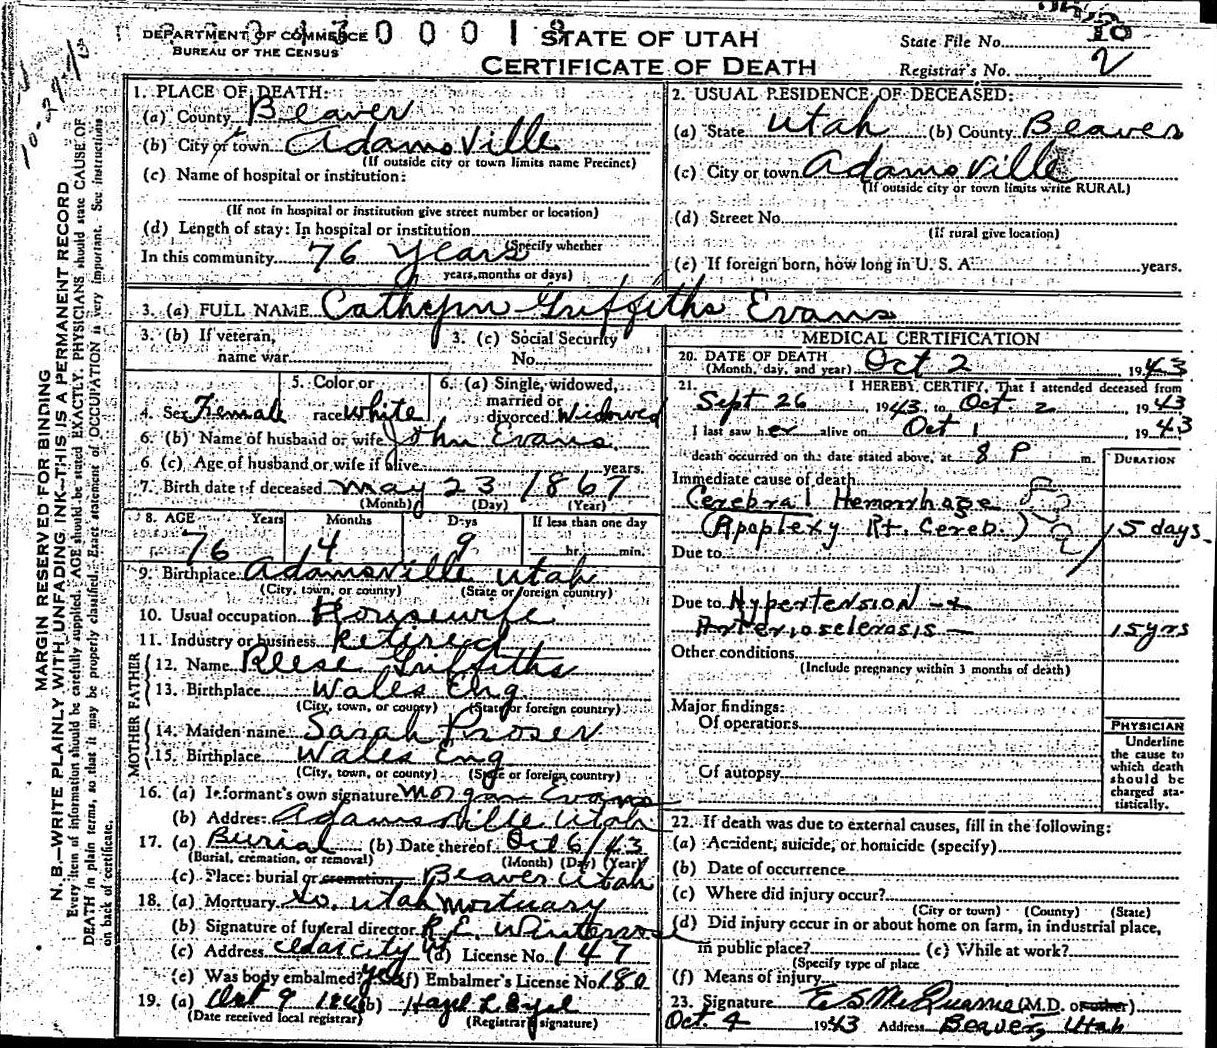 DEPARTMENT OF COMMERCE
BUREAU OF THE CENSUS
0 0 0 1 8
STATE OF UTAH
CERTIFICATE OF DEATH
State File No.
Registrar's No. 2
MARGIN RESERVED FOR BINDING
N. B.—WRITE PLAINLY WITH UNFADING INK—THIS IS A PERMANENT RECORD
Every item of information should be carefully supplied. AGE should be stated EXACTLY. PHYSICIANS should state CAUSE OF
DEATH in plain terms, so that it may be properly classified. Exact statement of OCCUPATION is very important. See instructions
on back of certificate.
1. PLACE OF DEATH:
(a) County Beaver
(b) City or town Adamsville
(If outside city or town limits name Precinct)
(c) Name of hospital or institution:
(If not in hospital or institution give street number or location)
(d) Length of stay: In hospital or institution
(Specify whether
In this community 76 years
years, months or days)
2. USUAL RESIDENCE OF DECEASED:
(a) State Utah (b) County Beaver
(c) City or town Adamsville
(If outside city or town limits write RURAL)
(d) Street No.
(If rural give location)
(e) If foreign born, how long in U. S. A. years.
3. (a) FULL NAME Cathryn Griffiths Evans
3. (b) If veteran,
name war
3. (c) Social Security
No.
4. Sex Female
5. Color or
race White
6. (a) Single, widowed,
married or
divorced Widowed
6. (b) Name of husband or wife John Evans
6 (c) Age of husband or wife if alive years.
7. Birth date of deceased May 23 1867
(Month) (Day) (Year)
8. AGE Years Months Days If less than one day
76 4 9 hr. min.
9. Birthplace Adamsville Utah
(City, town, or county) (State or foreign country)
10. Usual occupation Housewife
11. Industry or business Retired
FATHER
12. Name Reese Griffiths
13. Birthplace Wales Eng
(City, town, or county) (State or foreign country)
MOTHER
14. Maiden name Sarah Proser
15. Birthplace Wales Eng
(City, town, or county) (State or foreign country)
16. (a) Informant's own signature Morgan Evans
(b) Address Adamsville Utah
17. (a) Burial (b) Date thereof Oct 6/43
(Burial, cremation, or removal) (Month) (Day) (Year)
(c) Place: burial or cremation Beaver Utah
18. (a) Mortuary So. Utah Mortuary
(b) Signature of funeral director R. E. Winterrose
(c) Address Cedar City Ut (d) License No. 147
(e) Was body embalmed? yes (f) Embalmer's License No. 180
19. (a) Oct 9 (b)
(Date received local registrar) (Registrar's signature)
MEDICAL CERTIFICATION
20. DATE OF DEATH
(Month, day, and year) Oct 2, 1943
21. I HEREBY CERTIFY, That I attended deceased from
Sept 26, 1943, to Oct. 2, 1943
I last saw her alive on Oct 1, 1943
death occurred on the date stated above, at 8 P m.
DURATION
Immediate cause of death
Cerebral Hemorrhage
(Apoplexy Rt. Cereb.) 5 days
Due to
Due to Hypertension - +
Arteriosclerosis - 15 yrs
Other conditions
(Include pregnancy within 3 months of death)
Major findings:
Of operations
Of autopsy
PHYSICIAN
Underline
the cause to
which death
should be
charged sta-
tistically.
22. If death was due to external causes, fill in the following:
(a) Accident, suicide, or homicide (specify)
(b) Date of occurrence
(c) Where did injury occur?
(City or town) (County) (State)
(d) Did injury occur in or about home on farm, in industrial place,
in public place? (e) While at work?
(Specify type of place
(f) Means of injury
23. Signature (M.D. or other)
Oct. 4 1943 Address Beaver, Utah